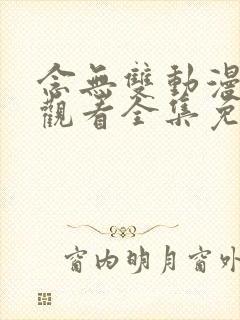 念無雙動漫
觀看全集免
窗內明月窗外